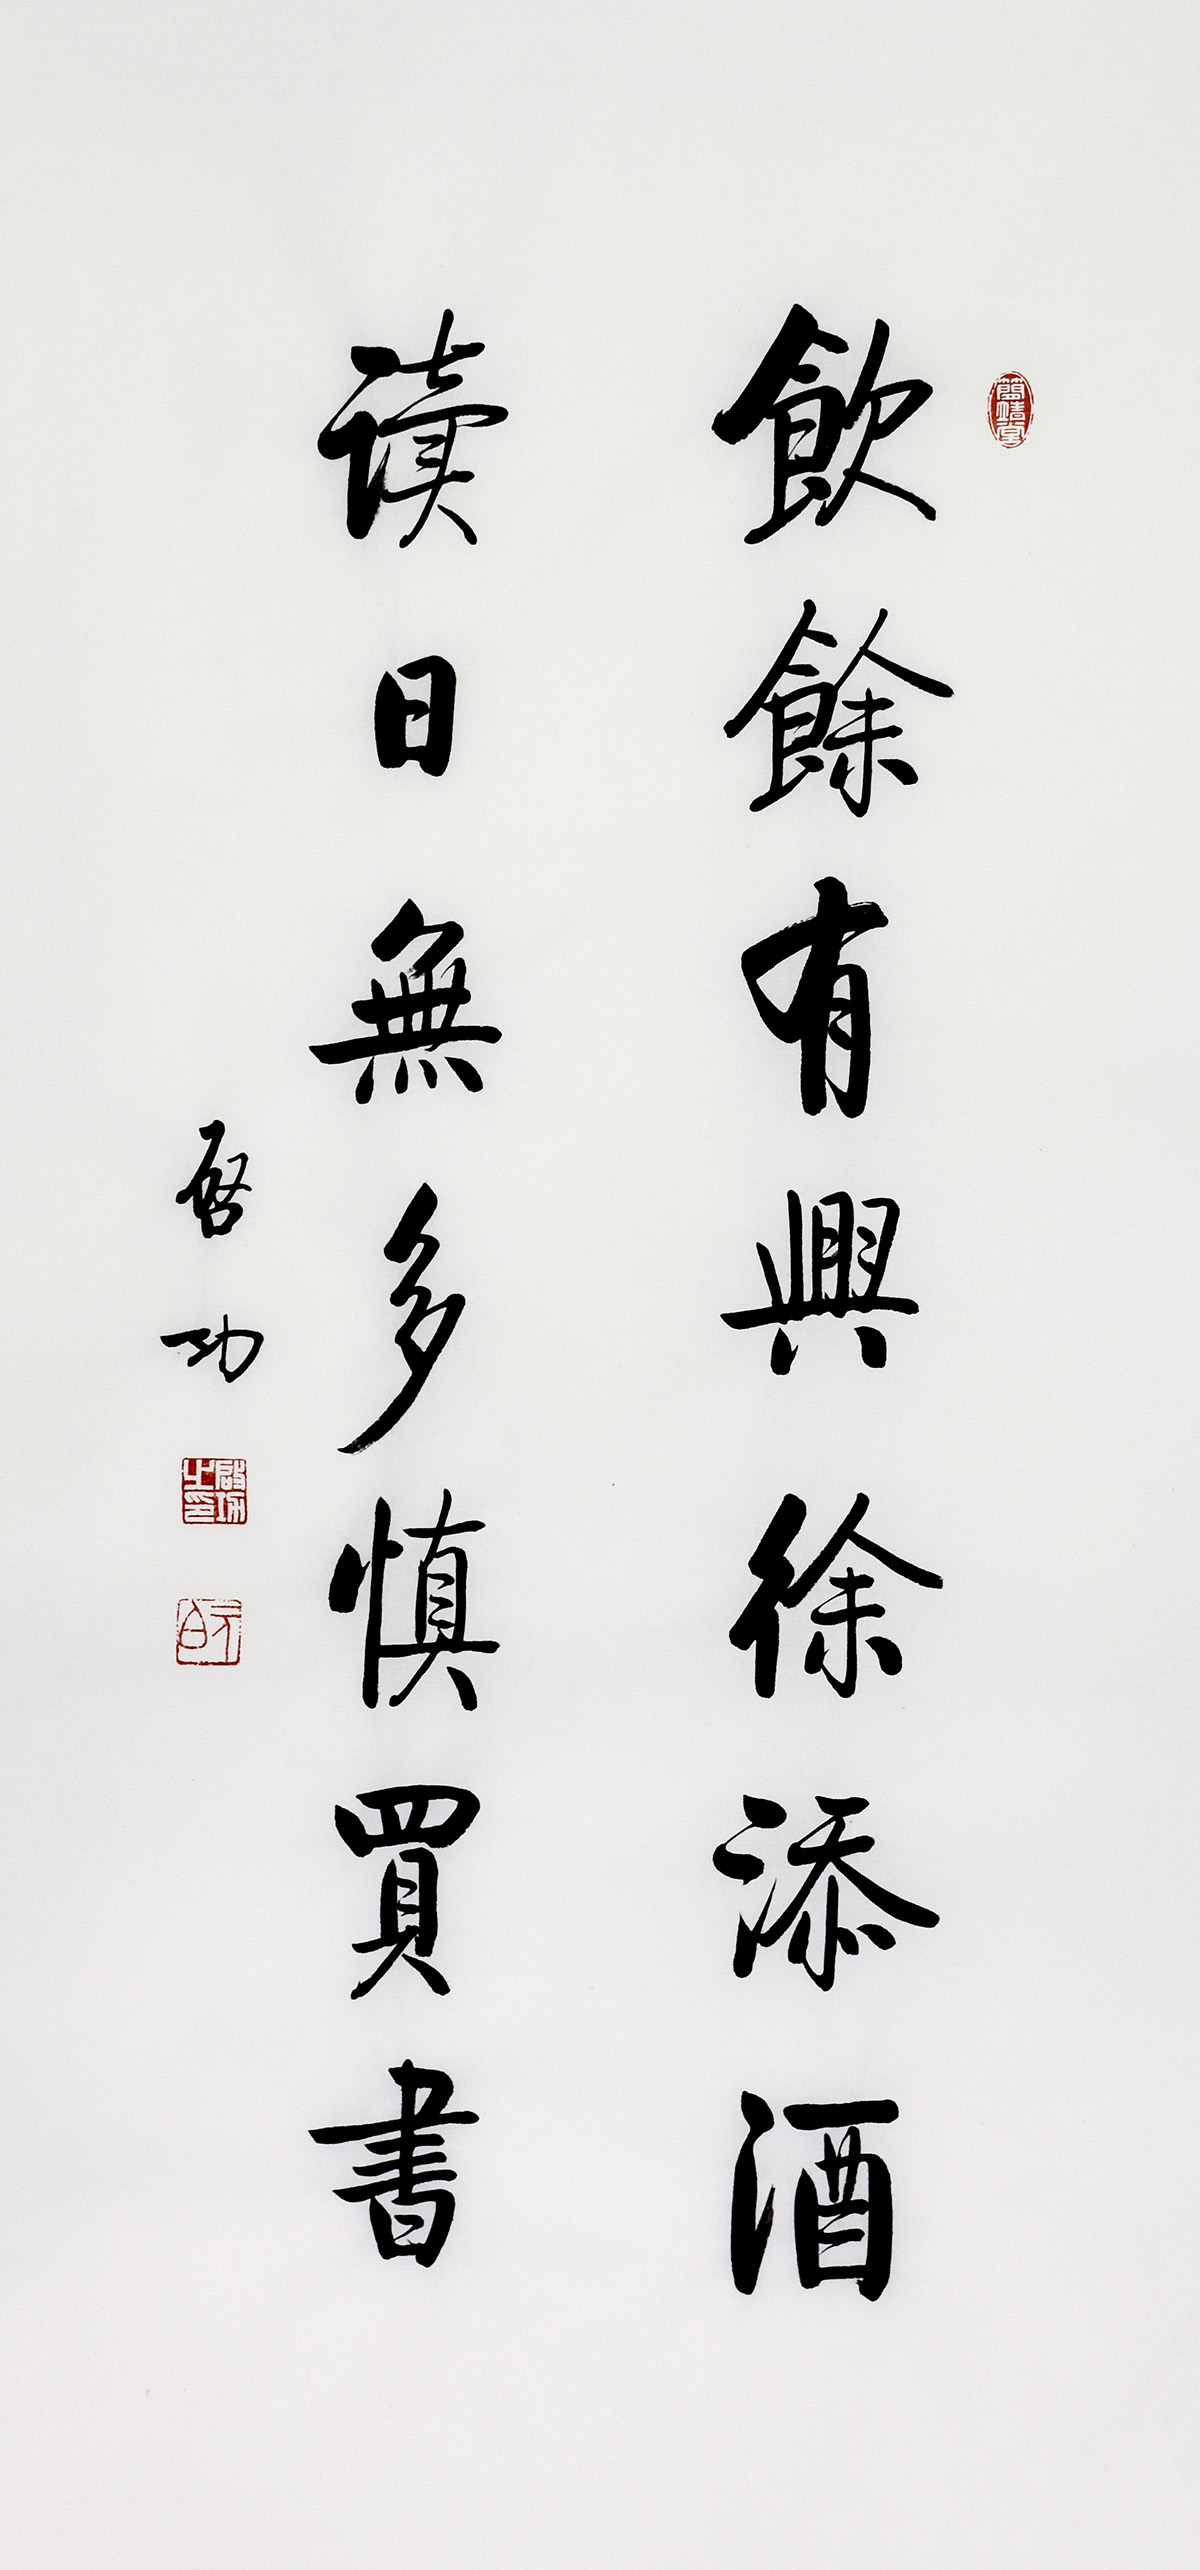 飲餘有興徐添酒
读日無多慎買書
啓功
簡靖堂
啟功之印
元白